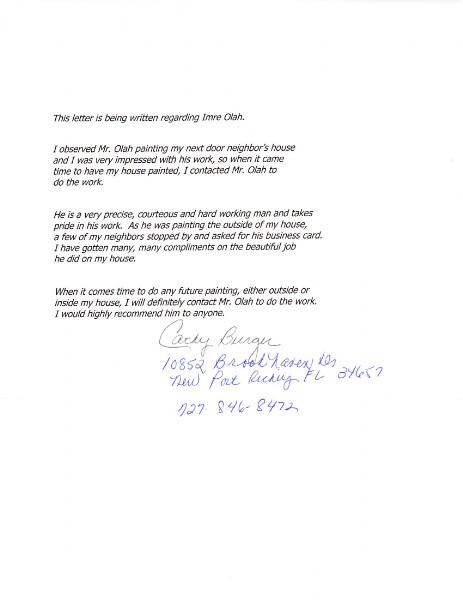 This letter is being written regarding Imre Olah.
I observed Mr. Olah painting my next door neighbor's house
and I was very impressed with his work, so when it came
time to have my house painted, I contacted Mr. Olah to
do the work.
He is a very precise, courteous and hard working man and takes
pride in his work. As he was painting the outside of my house,
a few of my neighbors stopped by and asked for his business card.
I have gotten many, many compliments on the beautiful job
he did on my house.
When it comes time to do any future painting, either outside or
inside my house, I will definitely contact Mr. Olah to do the work.
I would highly recommend him to anyone.
Cathy Burger
10852 Brookhaven Dr
New Port Richey FL 34657
727-846-8472